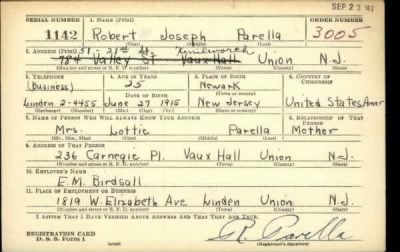 SEP 23 '41
SERIAL NUMBER 1. NAME (Print) ORDER NUMBER
1142 Robert Joseph Parella 3005
(First) (Middle) (Last)
2. ADDRESS (Print) 51 - 21st St. Kenilworth
784 Valley St. Vaux Hall Union N.J.
(Number and street or R. F. D. number) (Town) (County) (State)
3. TELEPHONE 4. AGE IN YEARS 5. PLACE OF BIRTH 6. COUNTRY OF CITIZENSHIP
(Business) 25 Newark
DATE OF BIRTH (Town or county)
Linden 2-4455 June 27 1915 New Jersey United States Amer
(Exchange) (Number) (Mo.) (Day) (Yr.) (State or country)
7. NAME OF PERSON WHO WILL ALWAYS KNOW YOUR ADDRESS 8. RELATIONSHIP OF THAT PERSON
Mrs. Lottie Parella Mother
(Mr., Mrs., Miss) (First) (Middle) (Last)
9. ADDRESS OF THAT PERSON
236 Carnegie Pl. Vaux Hall Union N.J.
(Number and street or R. F. D. number) (Town) (County) (State)
10. EMPLOYER'S NAME
E.M. Birdsall
11. PLACE OF EMPLOYMENT OR BUSINESS
1819 W. Elizabeth Ave Linden Union N.J.
(Number and street or R. F. D. number) (Town) (County) (State)
I AFFIRM THAT I HAVE VERIFIED ABOVE ANSWERS AND THAT THEY ARE TRUE.
REGISTRATION CARD
D. S. S. Form 1 (over) R. Parella
(Registrant's signature)